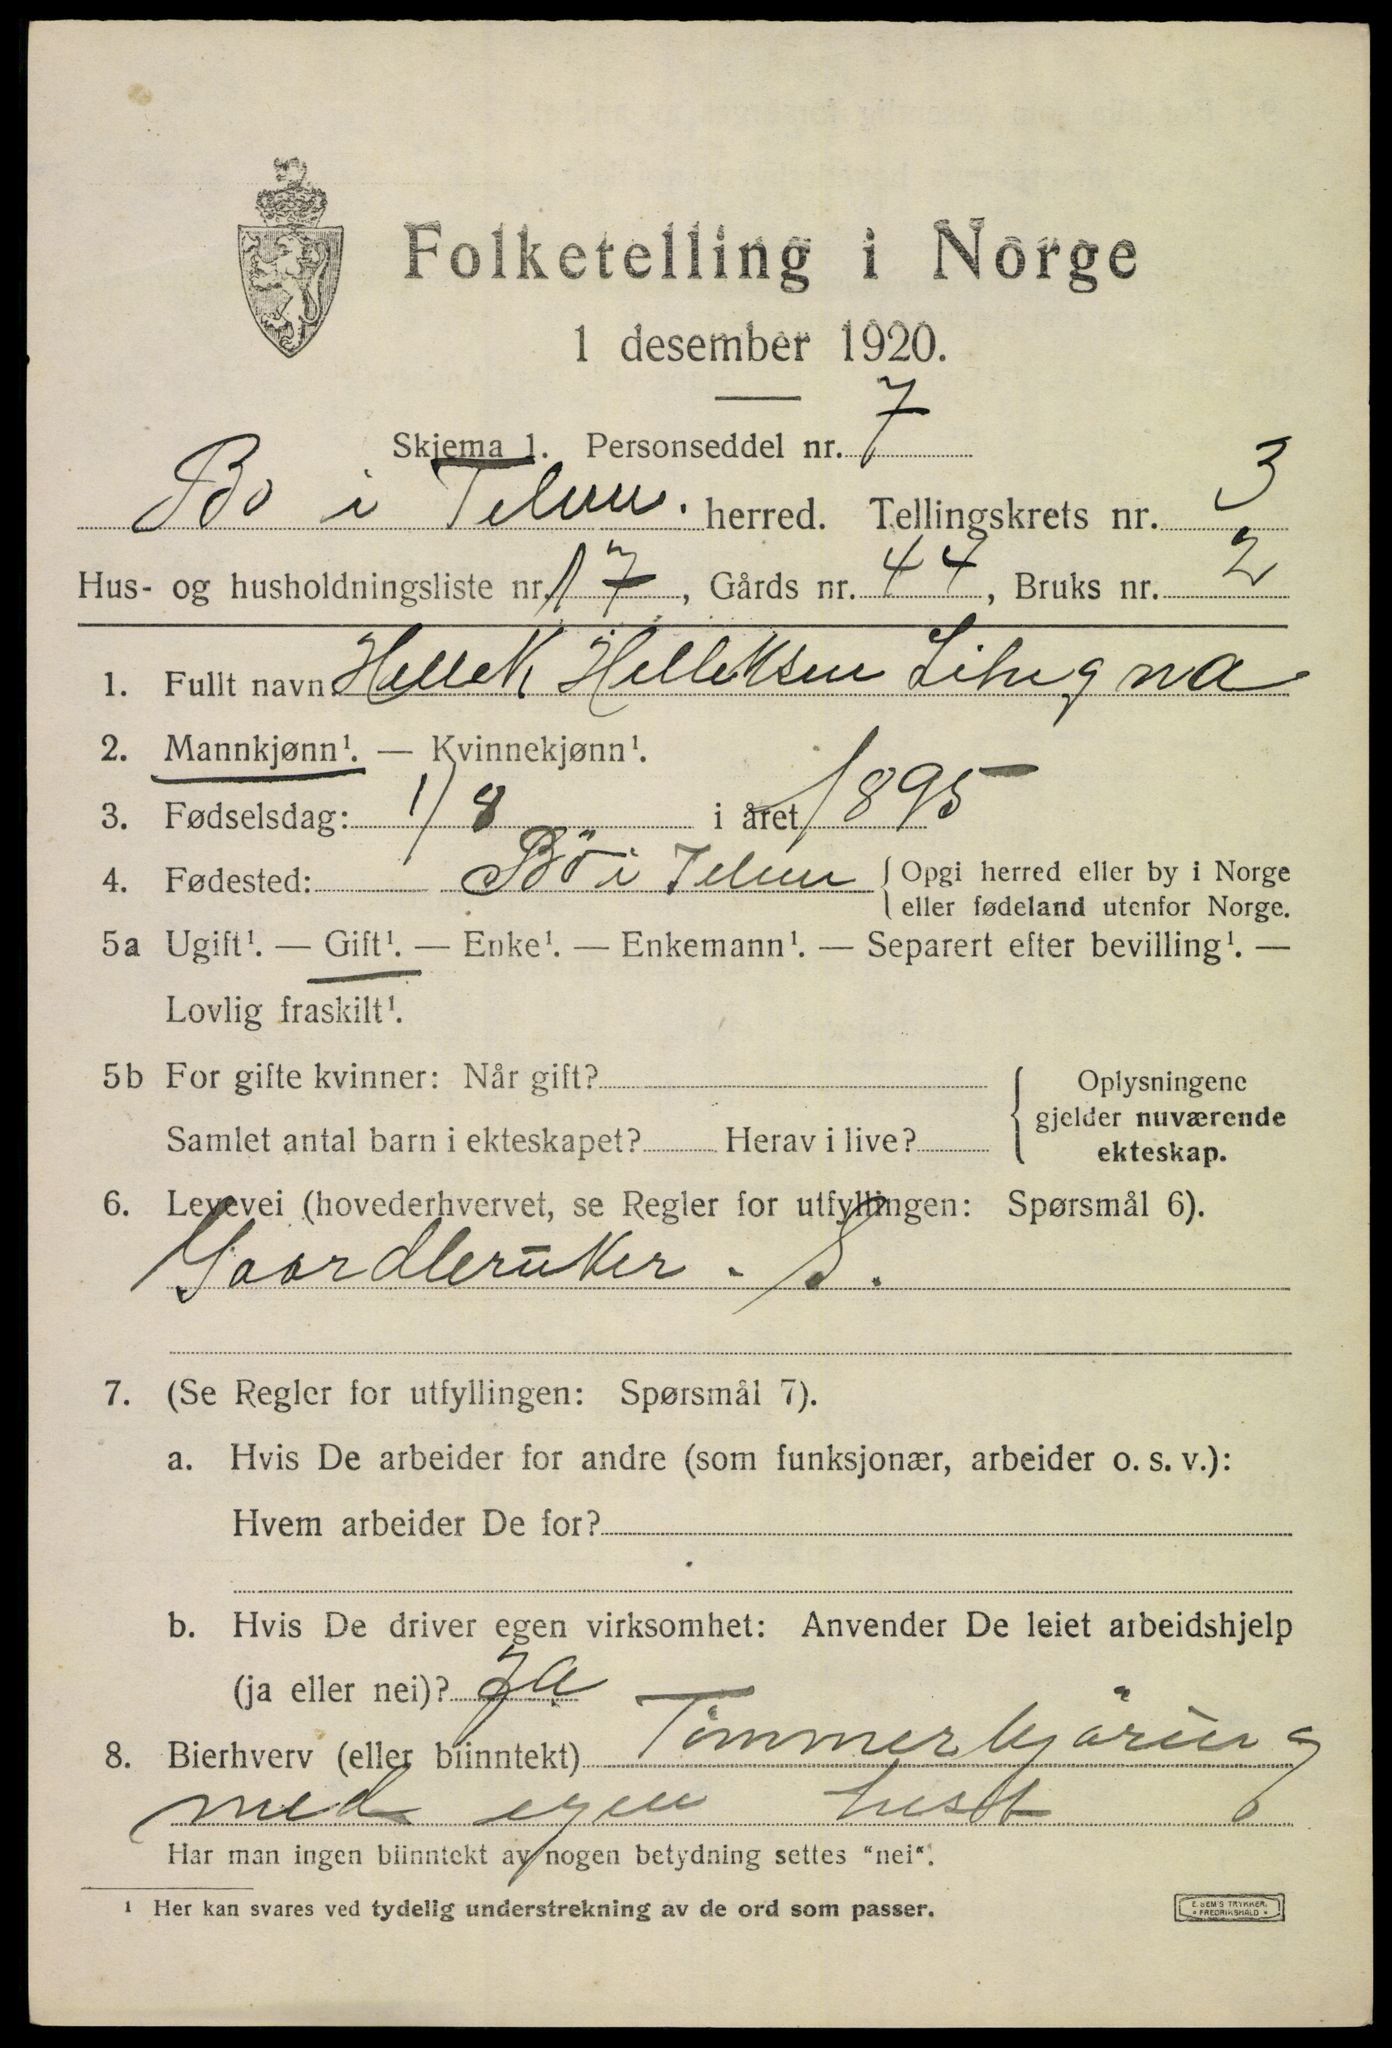 Folketelling i Norge
1 desember 1920.
Skjema 1. Personseddel nr. 7
Bø i Telem. herred. Tellingskrets nr. 3
Hus- og husholdningsliste nr. 17, Gårds nr. 44, Bruks nr. 2
1. Fullt navn Hellek Helleksen
2. Mannkjønn¹. — Kvinnekjønn¹.
3. Fødselsdag: 1/8 i året 1895
4. Fødested: Bö i Telem { Opgi herred eller by i Norge
eller fødeland utenfor Norge.
5a Ugift¹. — Gift¹. — Enke¹. — Enkemann¹. — Separert efter bevilling¹. —
Lovlig fraskilt¹.
5b For gifte kvinner: Når gift?
Samlet antal barn i ekteskapet? Herav i live?
{ Oplysningene
gjelder nuværende
ekteskap.
6. Levevei (hovederhvervet, se Regler for utfyllingen: Spørsmål 6).
Gaardbruker. S.
7. (Se Regler for utfyllingen: Spørsmål 7).
a. Hvis De arbeider for andre (som funksjonær, arbeider o. s. v.):
Hvem arbeider De for?
b. Hvis De driver egen virksomhet: Anvender De leiet arbeidshjelp
(ja eller nei)? Ja
8. Bierhverv (eller biinntekt) Tömmerkjöring
med egen hest
Har man ingen biinntekt av nogen betydning settes "nei".
¹ Her kan svares ved tydelig understrekning av de ord som passer.
E. SEM'S TRYKKER.
* FREDRIKSHALD *